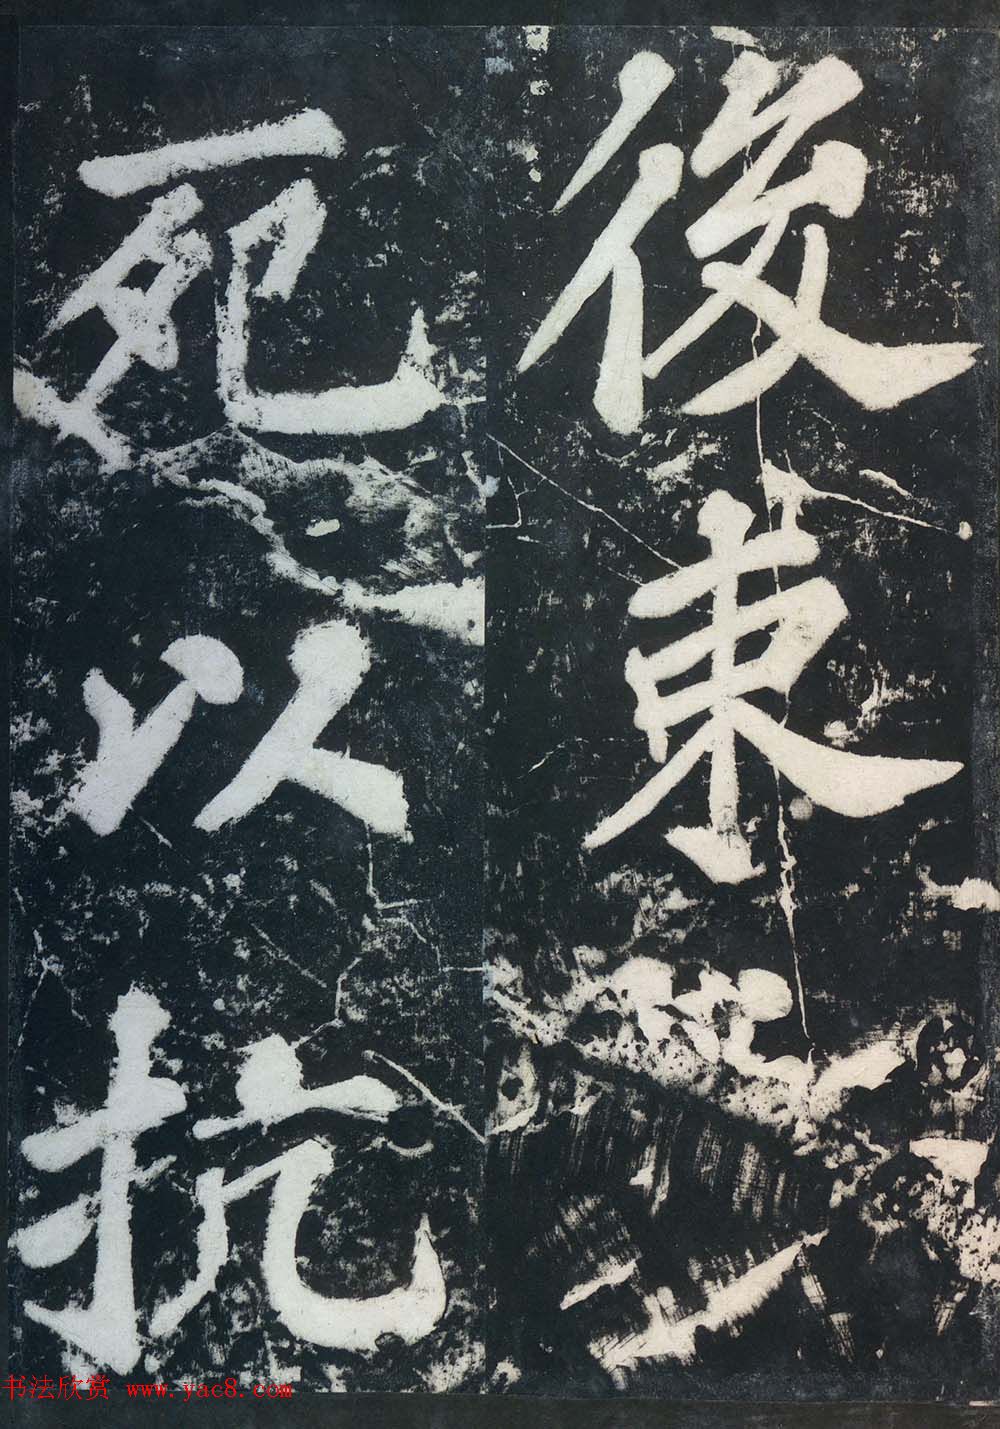 後東
死以抗
书法欣赏 www.yac8.com